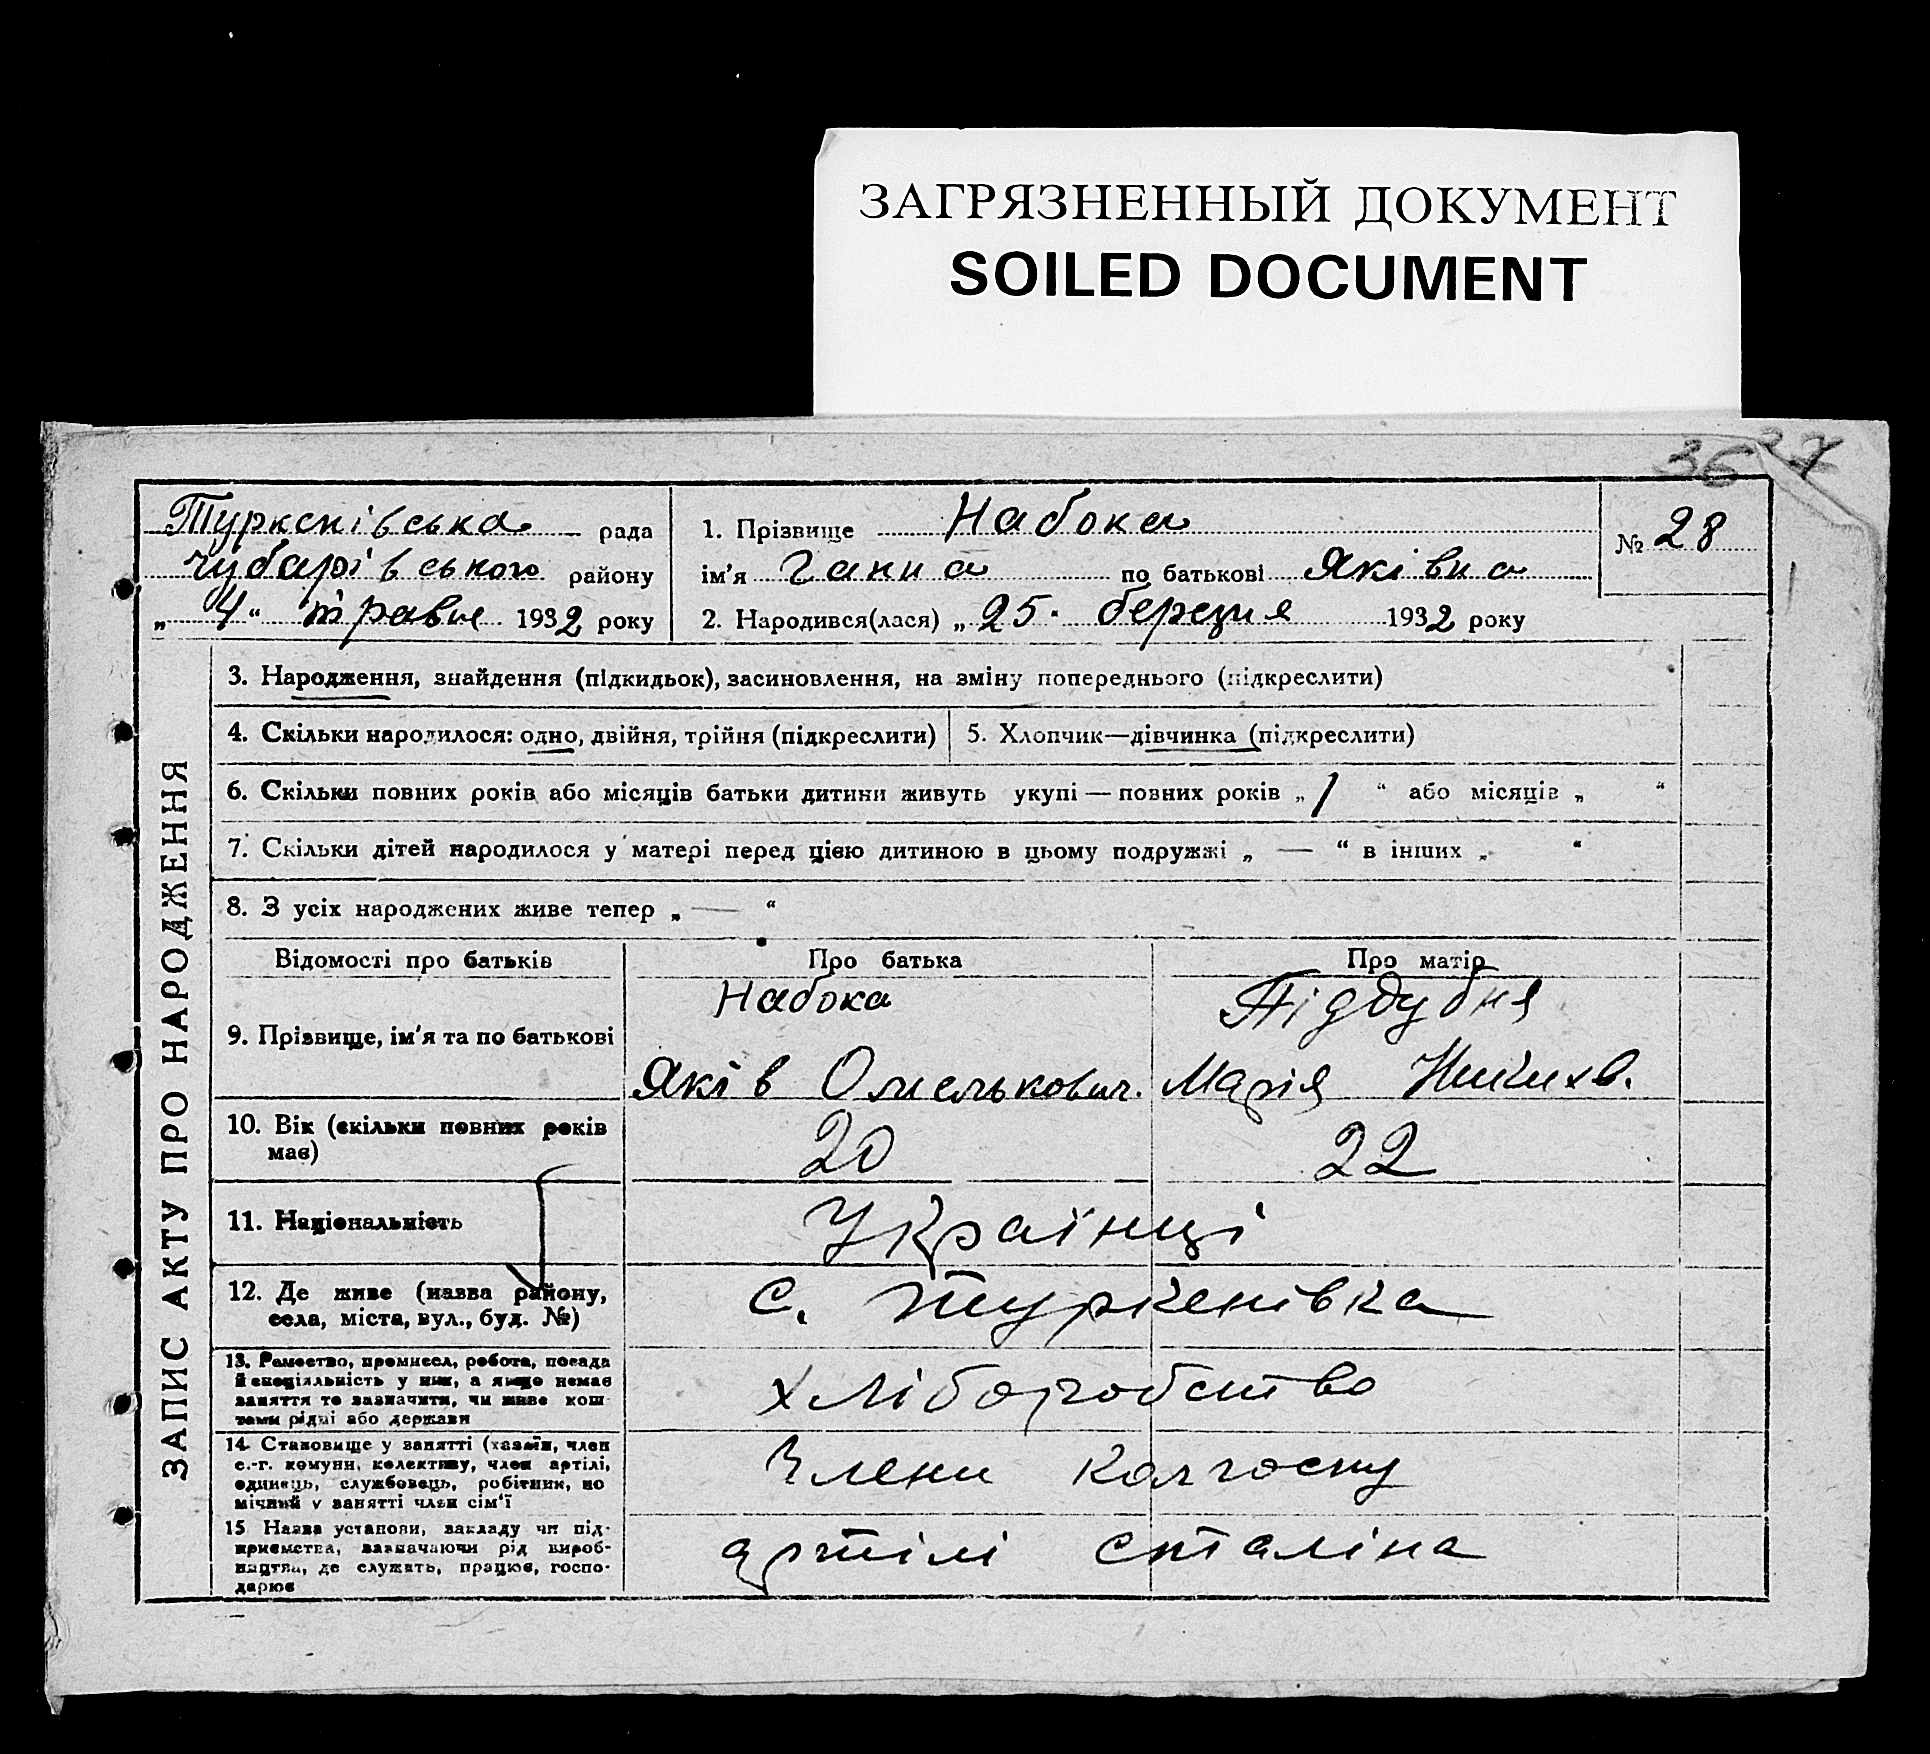 ЗАГРЯЗНЕННЫЙ ДОКУМЕНТ
SOILED DOCUMENT
36 37
Туркенівська рада
Чубарівського району
„ 4 “ травня 1932 року
1. Прізвище Набока
ім’я Ганна по батькові Яківна
2. Народився(лася) „ 25. березня 1932 року
№ 28
ЗАПИС АКТУ ПРО НАРОДЖЕННЯ
3. Народження, знайдення (підкидьок), засиновлення, на зміну попереднього (підкреслити)
4. Скільки народилося: одно, двійня, трійня (підкреслити)
5. Хлопчик—дівчинка (підкреслити)
6. Скільки повних років або місяців батьки дитини живуть укупі — повних років „ 1 “ або місяців „ “
7. Скільки дітей народилося у матері перед цією дитиною в цьому подружжі „ — “ в інших „ “
8. З усіх народжених живе тепер „ — “
Відомості про батьків
Про батька
Про матір
9. Прізвище, ім’я та по батькові
Набока
Яків Омелькович.
Піддубня
Марія
10. Вік (скільки повних років
має)
20
22
11. Національність
Українці
12. Де живе (назва району,
села, міста, вул., буд. №)
с. Туркенівка
13. Ремество, промисел, робота, посада
й спеціяльність у них, а якщо немає
заняття то зазначити, чи живе кош
тами рідні або держави
хліборобство
14. Становище у занятті (хазяїн, член
с.-г. комуни, колективу, член артілі,
одинець, службовець, робітник, по
мічний у занятті член сім’ї
Члени колгоспу
15 Назва установи, закладу чи під-
приємства, зазначаючи рід вироб-
ництва, де служать, працює, госпо-
дарює
артілі Сталіна